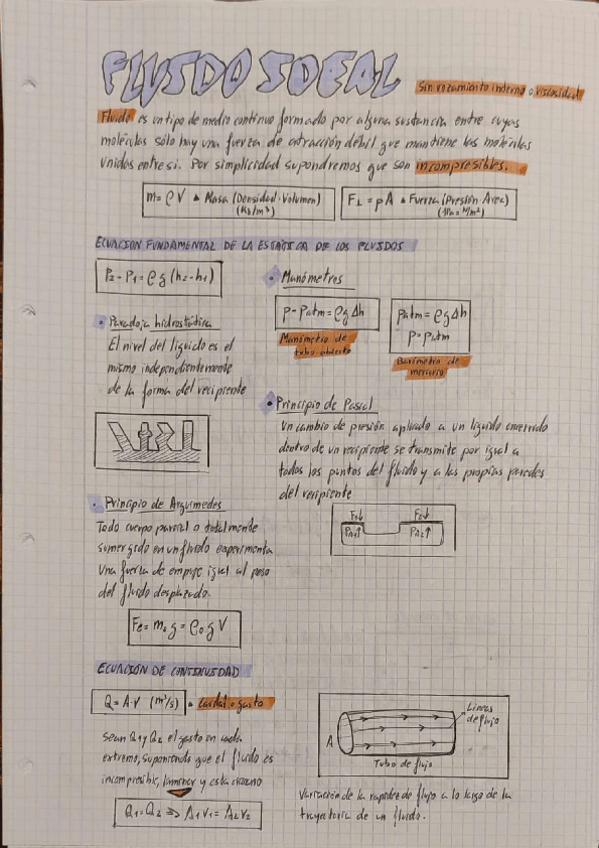 FLUIDO IDEAL
Sin rozamiento interno o viscosidad
Fluido es un tipo de medio continuo formado por alguna sustancia entre cuyas
moléculas sólo hay una fuerza de atracción débil que mantiene las moléculas
unidas entre si. Por simplicidad supondremos que son incompresibles.
m = ρ V • Masa (Densidad·Volumen)
(Kg/m³)
F⊥ = p A • Fuerza (Presión·Area)
(1Pa = N/m²)
ECUACION FUNDAMENTAL DE LA ESTÁTICA DE LOS FLUIDOS
P₂ - P₁ = ρ g (h₂ - h₁)
• Paradoja hidrostática
El nivel del líquido es el
mismo independientemente
de la forma del recipiente
• Manómetros
p - patm = ρ g Δh
Manómetro de
tubo abierto
patm = ρ g Δh
p = patm
Barómetro de
mercurio
• Principio de Pascal
Un cambio de presión aplicado a un líquido encerrado
dentro de un recipiente se transmite por igual a
todos los puntos del fluido y a las propias paredes
del recipiente
F₀↓ F₀↓
PA₁↑ PA₂↑
• Principio de Arquímedes
Todo cuerpo parcial o totalmente
sumergido en un fluido experimenta
una fuerza de empuje igual al peso
del fluido desplazado.
Fe = m₀ g = ρ₀ g V
ECUACIÓN DE CONTINUIDAD
Q = A·v (m³/s) • caudal o gasto
Sean Q₁ y Q₂ el gasto en cada
extremo, suponiendo que el fluido es
incompresible, laminar y
Q₁ = Q₂ => A₁v₁ = A₂v₂
Líneas
de flujo
A
Tubo de flujo
Variación de la rapidez de flujo a lo largo de la
trayectoria de un fluido.